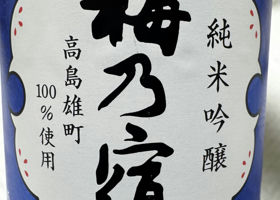 純米吟醸
梅乃宿
高島雄町
100%使用